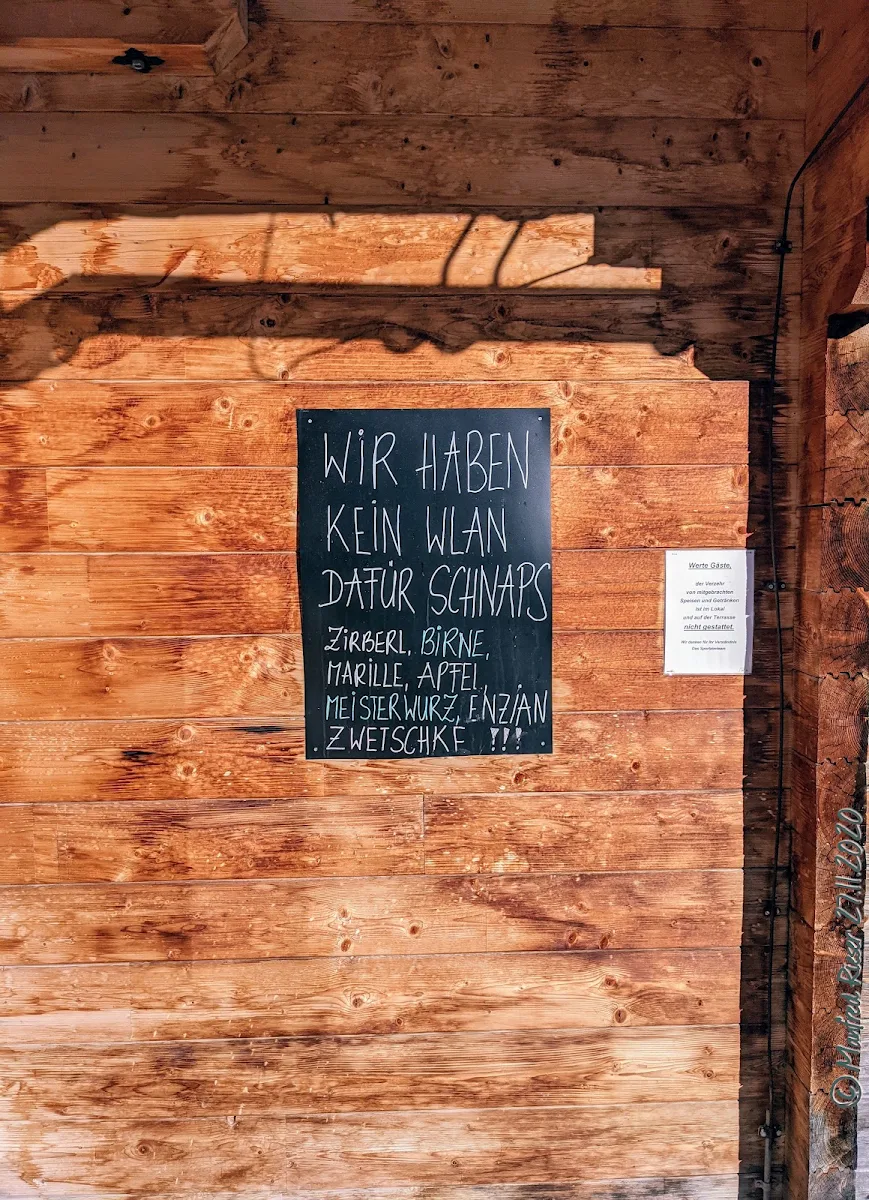 WIR HABEN
KEIN WLAN
DAFÜR SCHNAPS
ZIRBERL, BIRNE,
MARILLE, APFEL,
MEISTERWURZ, ENZIAN
ZWETSCHKE !!!
Werte Gäste,
der Verzehr
von mitgebrachten
Speisen und Getränken
ist im Lokal
und auf der Terrasse
nicht gestattet.
Wir danken für Ihr Verständnis
© Manfred 27.11.2020